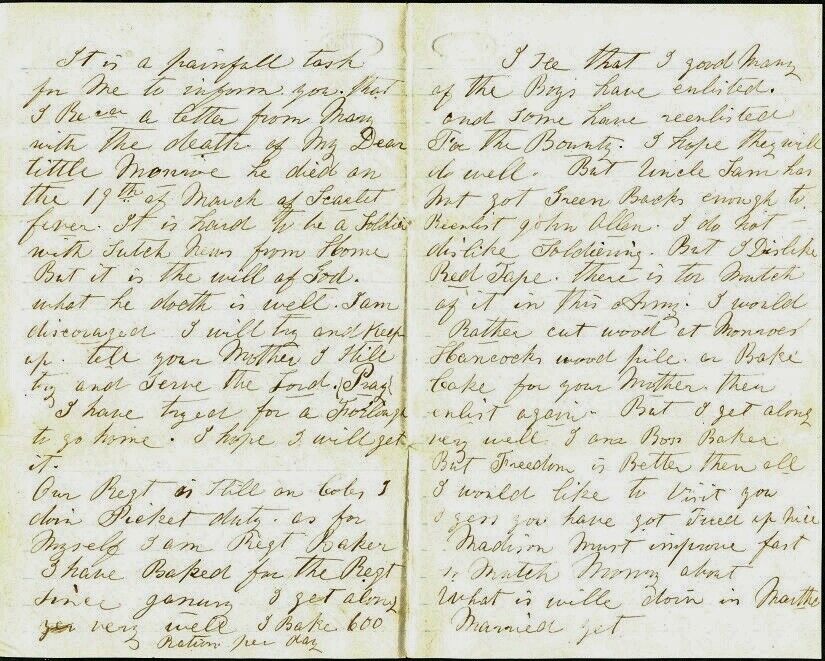 It is a painfull task
for Me to inform you. that
I Recev a letter from Mary
with the death of My Dear
little Monroe he died on
the 19th of March of Scarlet
fever. It is hard to be a Soldier
with Sutch News from Home
But it is the will of God.
what he doeth is well. I am
discouraged I will try and Keep
up. tell your Mother I Still
try and Serve the Lord. (Pray)
I have tryed for a Forlough
to go home. I hope I will get
it.
Our Regt is Still on Coles I
doin Picket duty. as for
Myself I am Regt Baker
I have Baked for the Regt
Since January I get along
very well I Bake 600
Rations per day
I See that I good Many
of the Boys have enlisted.
and Some have reenlisted
For the Bounty. I hope they will
do well. But Uncle Sam has
not got Green Backs enough to
Reenlist John Allen. I do not
dislike Soldiering. But I Dislike
Red Tape. there is to Mutch
of it in this Army. I would
Rather cut wood at Monroes
Hancocks wood pile. or Bake
Cake for your Mother. then
enlist again. But I get along
very well I am Boss Baker
But Freedom is Better then all
I would like to visit you
I gess you have got Fixed up Nice
Madison Must improve fast
is Mutch Money about
What is wille doin is Martha
Married yet